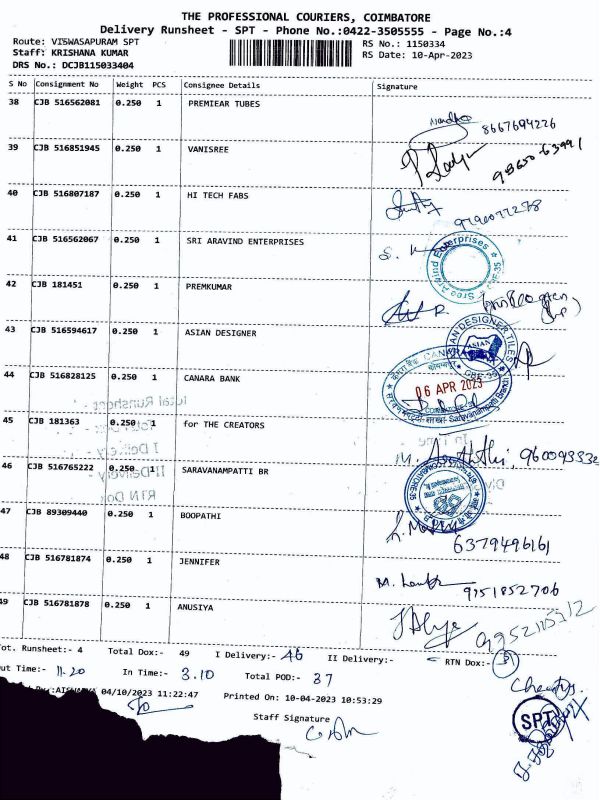 THE PROFESSIONAL COURIERS, COIMBATORE
Delivery Runsheet - SPT - Phone No.:0422-3505555 - Page No.:4
Route: VISWASAPURAM SPT RS No.: 1150334
Staff: KRISHANA KUMAR RS Date: 10-Apr-2023
DRS No.: DCJB115033404
S No Consignment No Weight PCS Consignee Details Signature
38 CJB 516562081 0.250 1 PREMIEAR TUBES
8667694226
39 CJB 516851945 0.250 1 VANISREE
40 CJB 516807187 0.250 1 HI TECH FABS
41 CJB 516562067 0.250 1 SRI ARAVIND ENTERPRISES
Sree Arvind Enterprises CBE-35
42 CJB 181451 0.250 1 PREMKUMAR
43 CJB 516594617 0.250 1 ASIAN DESIGNER
ASIAN DESIGNER TILES ASIAN CBE-35
44 CJB 516828125 0.250 1 CANARA BANK
CANARA
06 APR 2023
Saravanampatti Branch
45 CJB 181363 0.250 1 for THE CREATORS
46 CJB 516765222 0.250 1 SARAVANAMPATTI BR
47 CJB 89309440 0.250 1 BOOPATHI
6379496161
48 CJB 516781874 0.250 1 JENNIFER
9751852706
49 CJB 516781878 0.250 1 ANUSIYA
Tot. Runsheet:- 4 Total Dox:- 49 I Delivery:- 46 II Delivery:- RTN Dox:-
Out Time:- 11.20 In Time:- 3.10 Total POD:- 37
04/10/2023 11:22:47 Printed On: 10-04-2023 10:53:29
Staff Signature
SPT